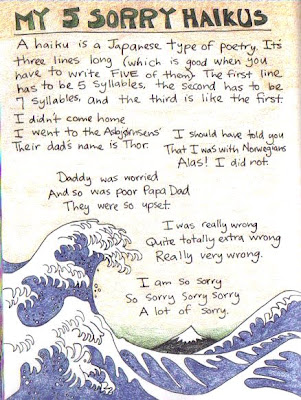 MY 5 SORRY HAIKUS
A haiku is a Japanese type of poetry. It's
three lines long (which is good when you
have to write FIVE of them). The first line
has to be 5 Syllables, the second has to be
7 Syllables, and the third is like the first.
I didn't come home
I went to the Asbjørnsens'
Their dad's name is Thor.
I should have told you
That I was with Norwegians
Alas! I did not.
Daddy was worried
And so was poor Papa Dad
They were so upset.
I was really wrong
Quite totally extra wrong
Really very wrong.
I am so sorry
So sorry sorry sorry
A lot of sorry.